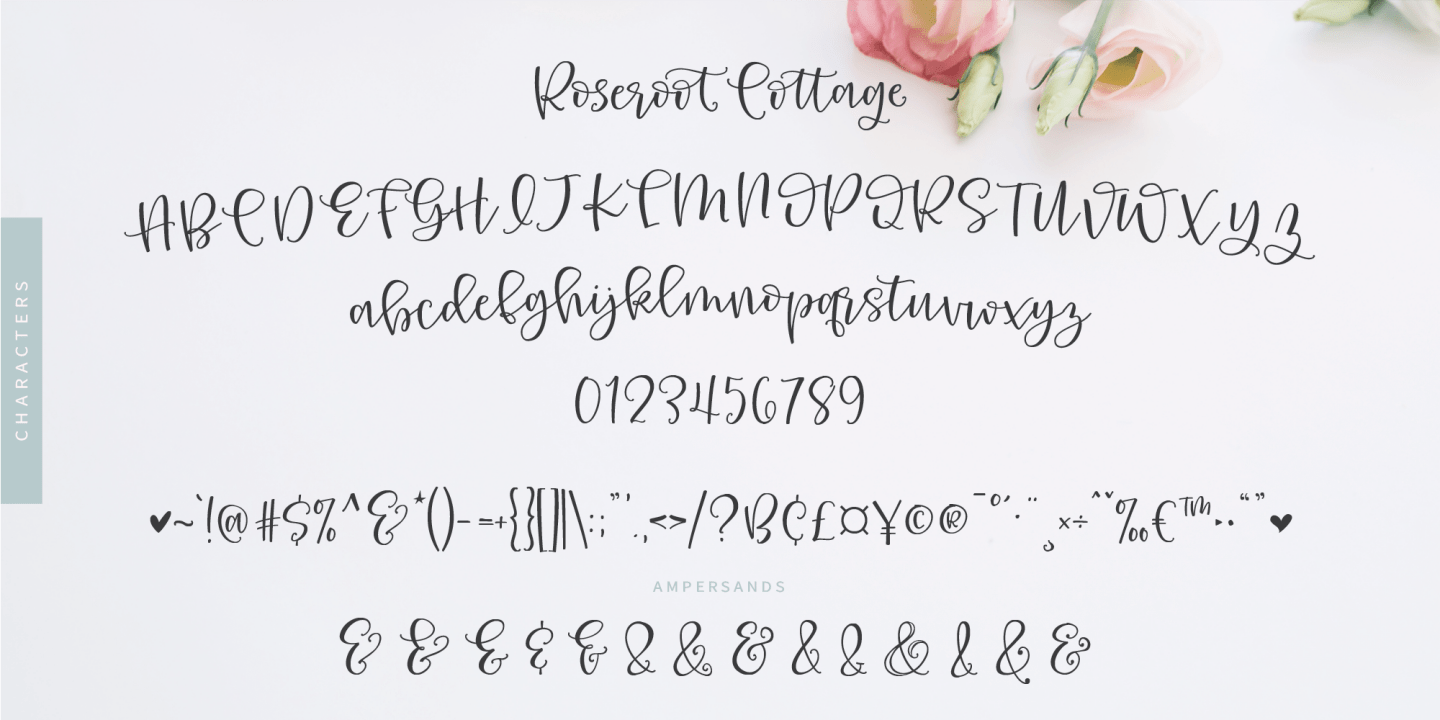 Roseroot Cottage
ABCDEFGHIJKLMNOPQRSTUVWXYZ
abcdefghijklmnopqrstuvwxyz
0123456789
♥~`!@#$%^&*()-=+{}[]|\:;"'.,<>/?B¢£¤¥©®¯°´·¨¸×÷ˆˇ‰€™‣•“”♥
AMPERSANDS
& & & & & & & & & & & & & &
CHARACTERS